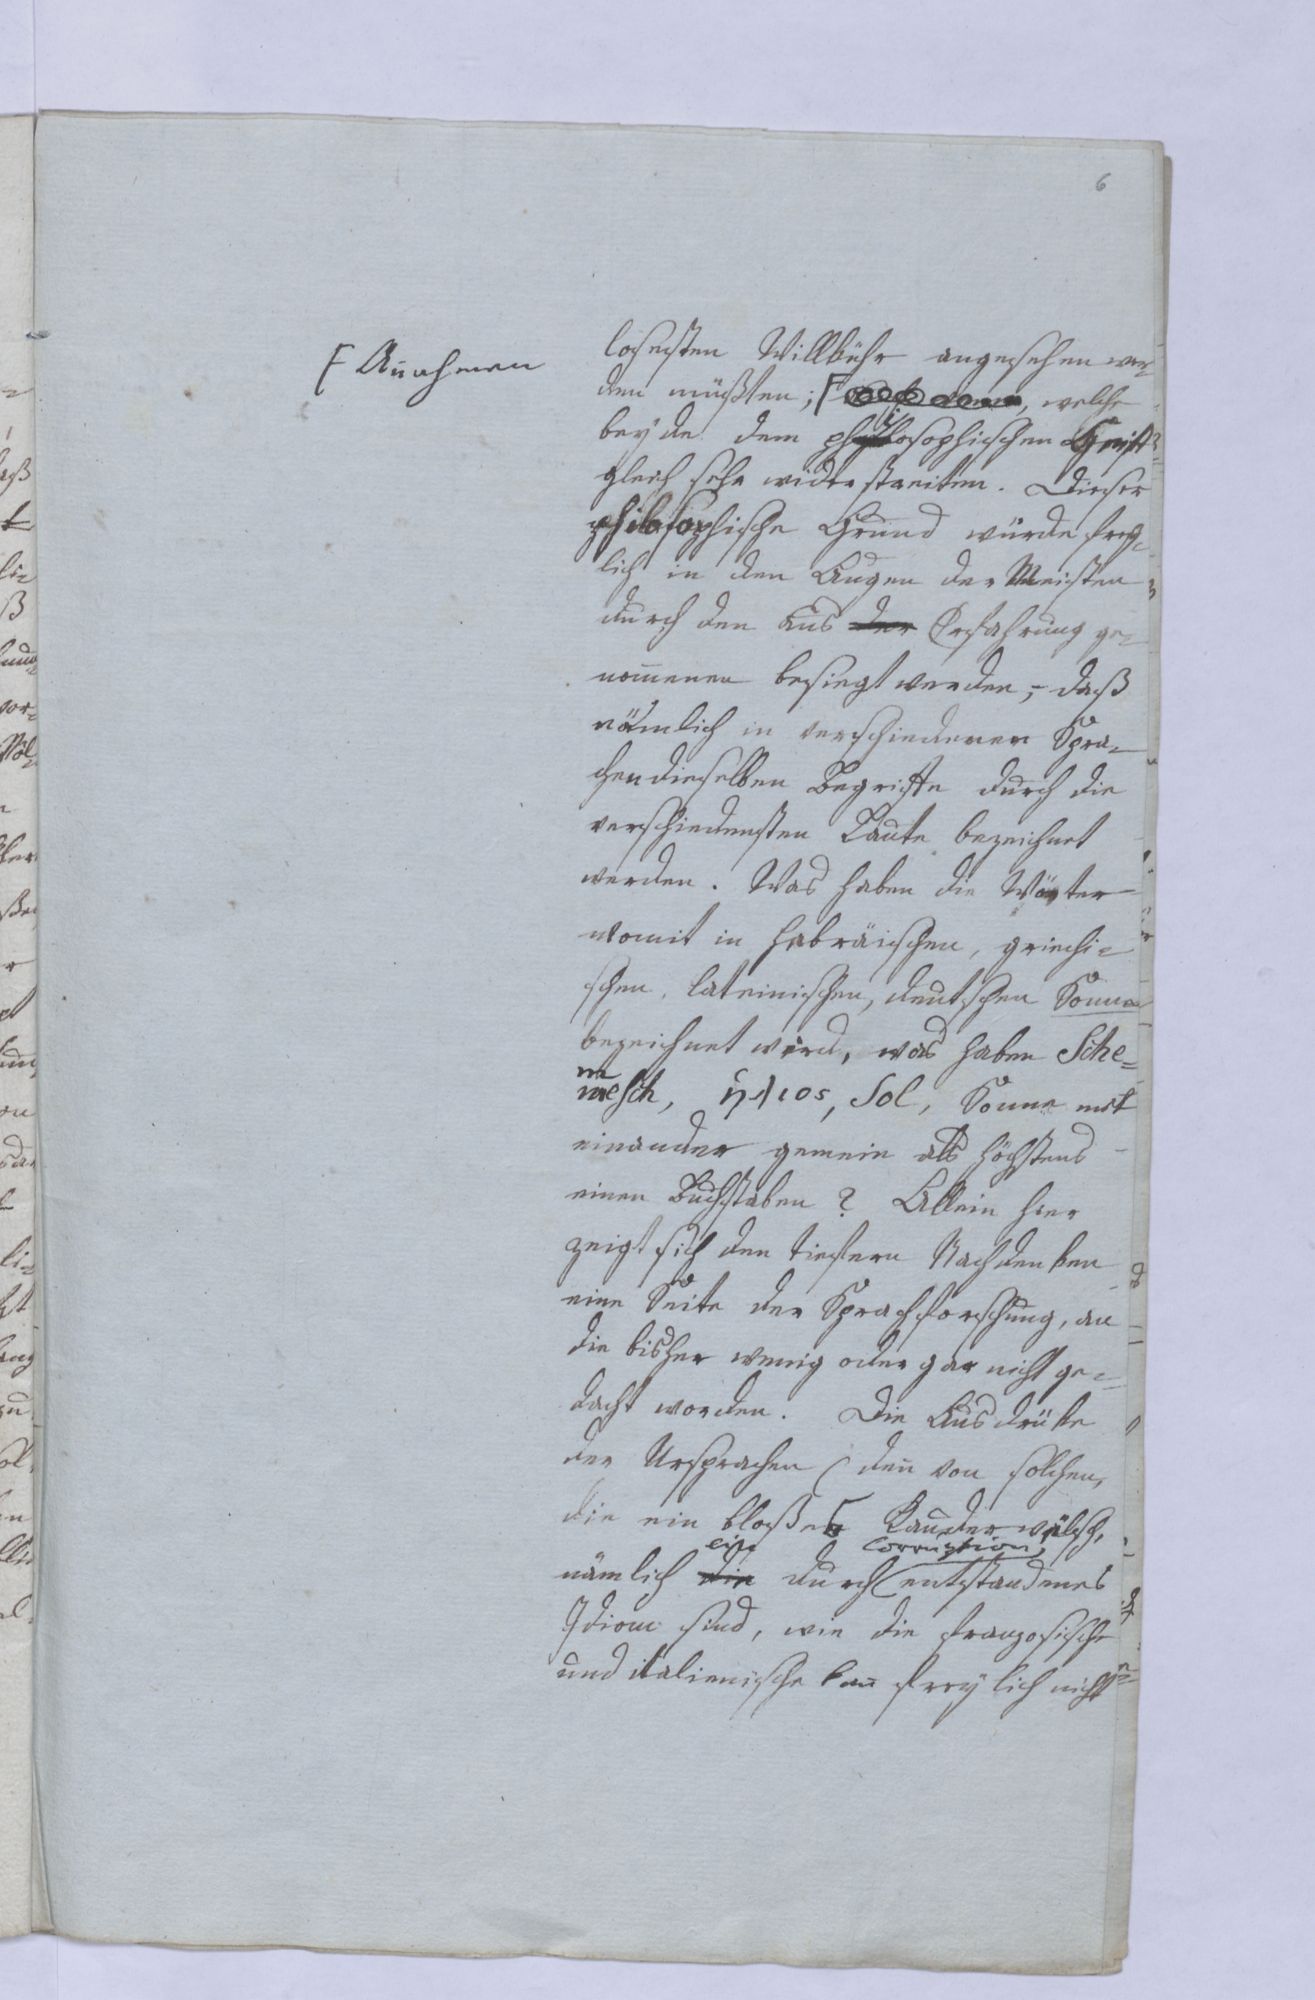 6
losesten Willkühr angesehen wer-
den müßten; welche
Annahmen
beyde dem philosophischen Geist
gleich sehr widerstreiten. Dieser
philosophische Grund würde frey-
lich in den Augen der Meisten
durch den aus der Erfahrung ge-
nom̄enen besiegt werden, daß
nämlich in verschiedenen Spra-
chen dieselben Begriffe durch die
verschiedensten Laute bezeichnet
werden. Was haben die Wörter
womit in hebräischen, griechi-
schen, lateinischen, deutschen Sonne
bezeichnet wird, was haben Sche-
mesch, ἥλιος, Sol, Sonne mit
einander gemein als höchstens
einen Buchstaben? Allein hier
zeigt sich den tiefern Nachdenken
eine Seite der Sprachforschung, an
die bisher wenig oder gar nicht ge-
dacht worden. Die Ausdrüke
der Ursprachen (den̄ von solchen,
die ein bloßes Kauderwälsch,
nämlich die ein durch Corruption entstandenes
Idiom sind, wie die franzosische
und italienische kan̄ freylich nicht